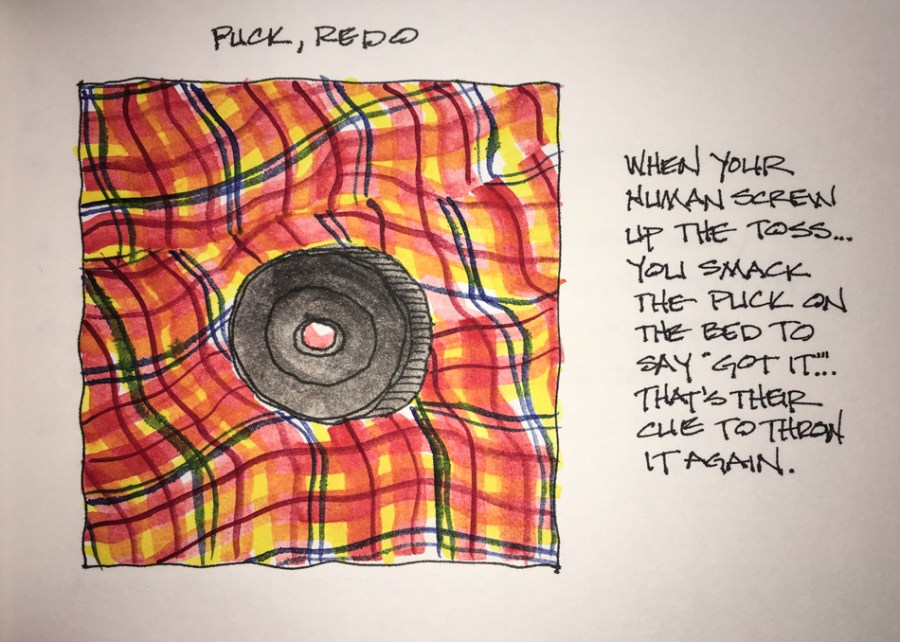 PUCK, REDO
WHEN YOUR
HUMAN SCREW
UP THE TOSS...
YOU SMACK
THE PUCK ON
THE BED TO
SAY "GOT IT"...
THAT'S THEIR
CUE TO THROW
IT AGAIN.